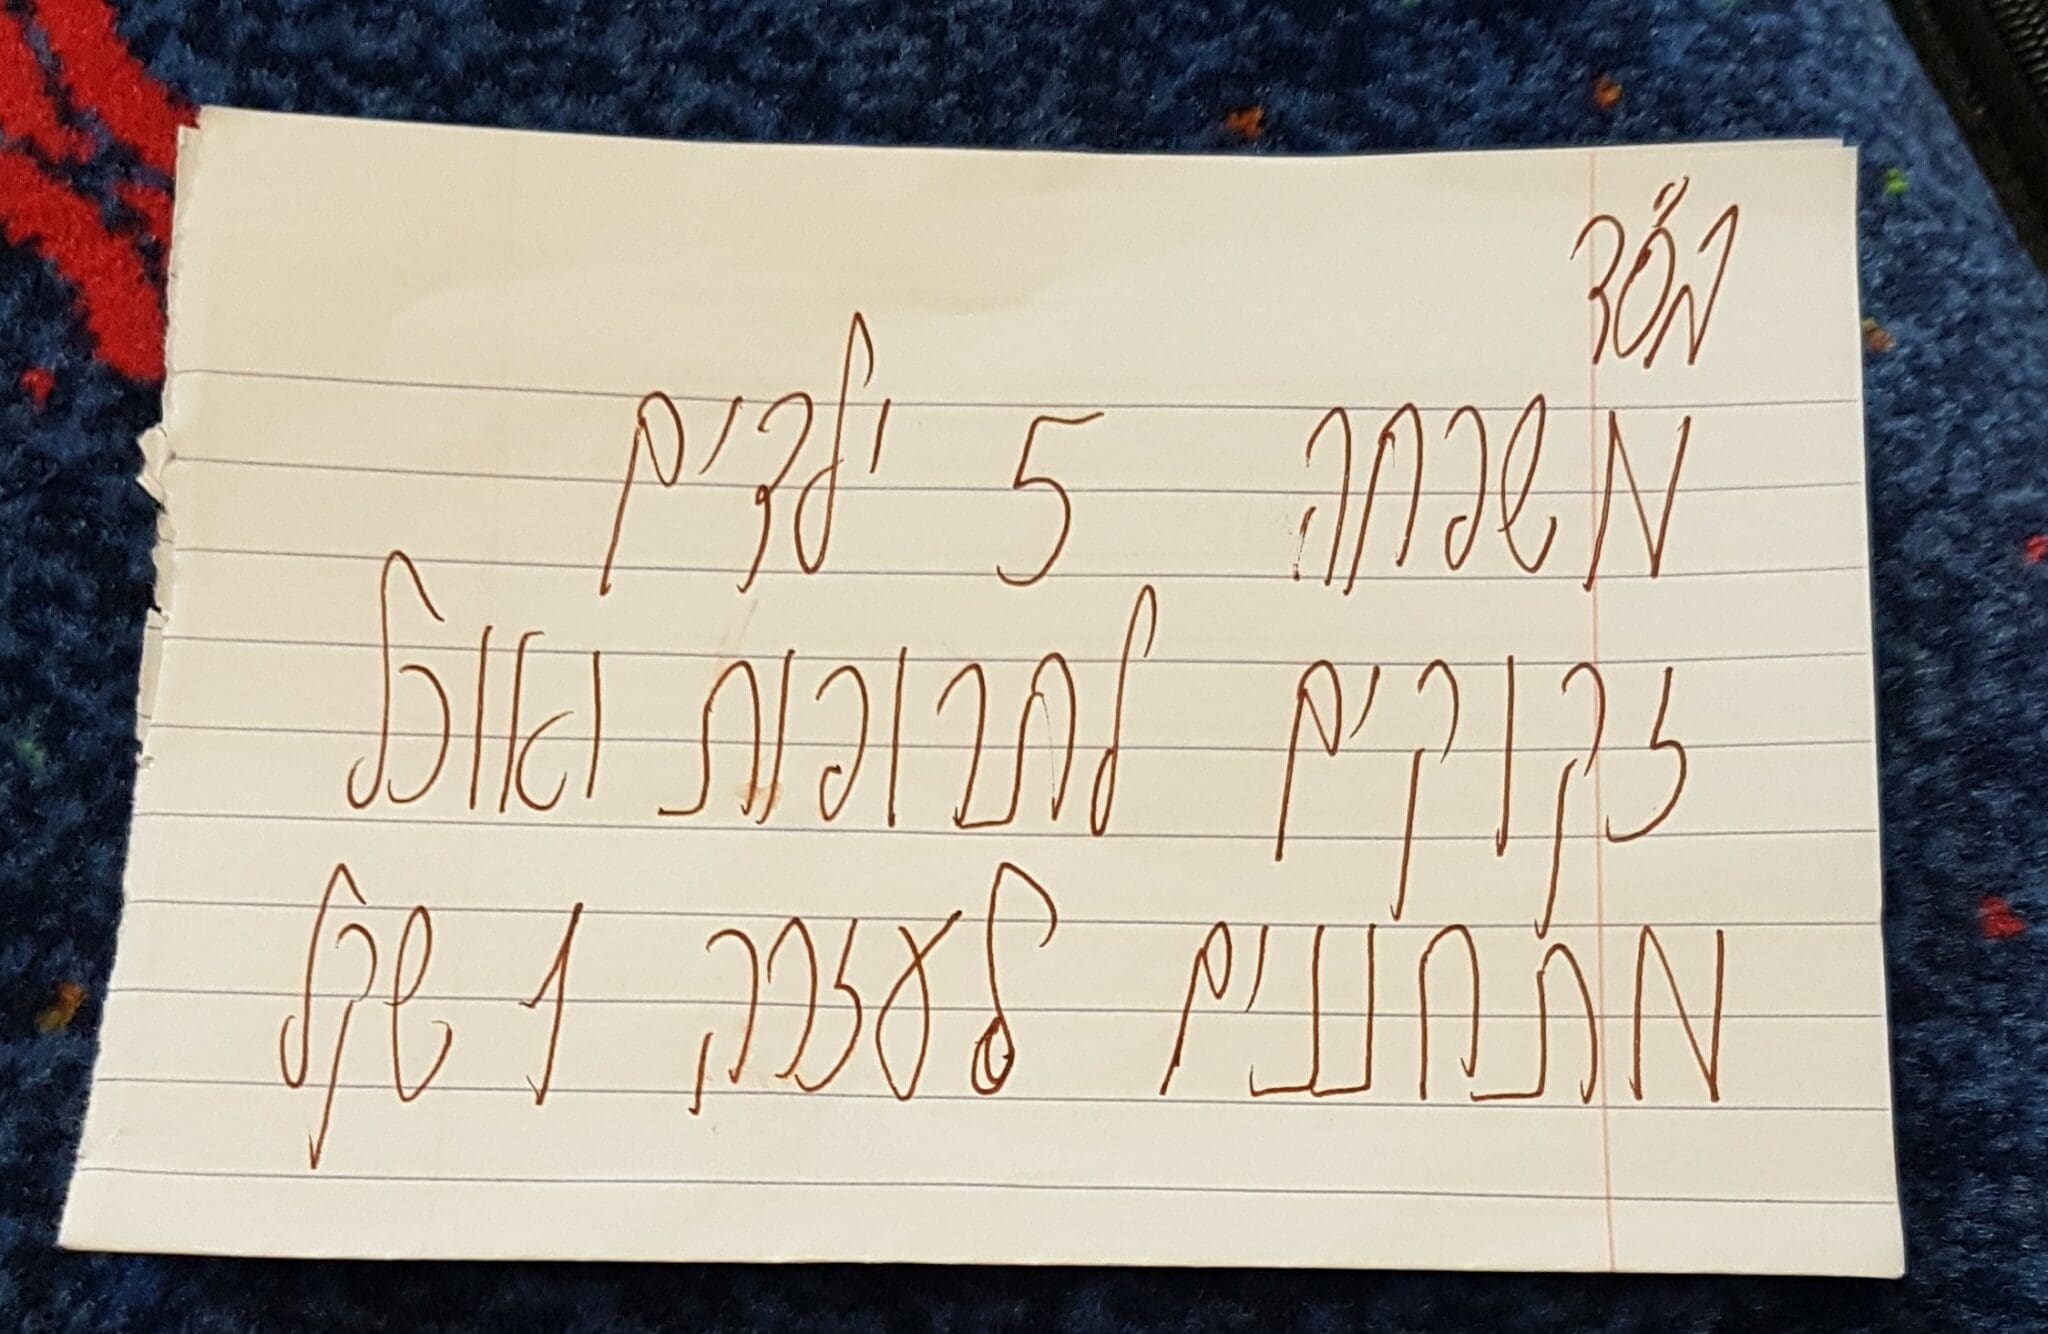 בס"ד
משפחה 5 ילדים
זקוקים לתרופות ואוכל
מתחננים לעזרה 1 שקל